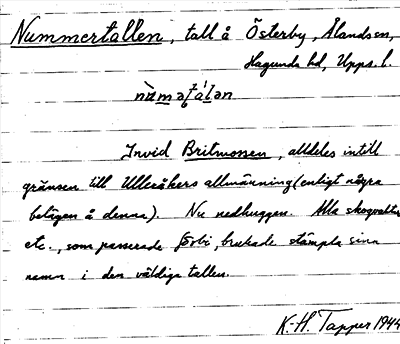 Nummertallen, tall å Österby, Ålandsen,
Hagunda hd, Upps. l.
Invid Britmossen, alldeles intill
gränsen till Ulleråkers allmänning (enligt några
belägen å denna). Nu nedhuggen. Alla skogvaktare
etc., som passerade förbi, brukade stämpla sina
namn i den väldiga tallen.
K.-H. Tapper 1944